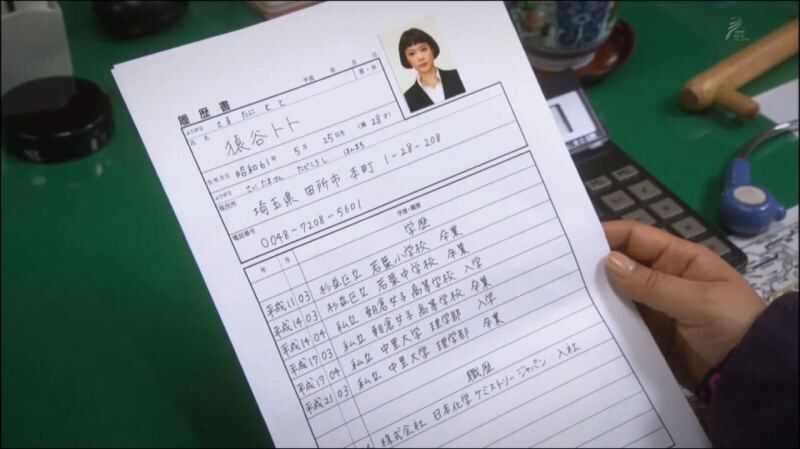 履歴書
平成 年 月 日
ふりがな さる たに と と
男・女
氏名 猿谷トト
生年月日 昭和61年 5月 25日生 (満 28才)
ふりがな さいたまけん たどころし ほんまち
現住所 埼玉県 田所市 本町 1-28-208
電話番号 0048-7208-5601
年 月 学歴・職歴
学歴
平成11 03 杉並区立 若葉小学校 卒業
平成14 03 杉並区立 若葉中学校 卒業
平成14 04 私立 朝倉女子高等学校 入学
平成17 03 私立 朝倉女子高等学校 卒業
平成17 04 私立 中里大学 理学部 入学
平成21 03 私立 中里大学 理学部 卒業
職歴
株式会社 日本化学ケミストリージャパン 入社